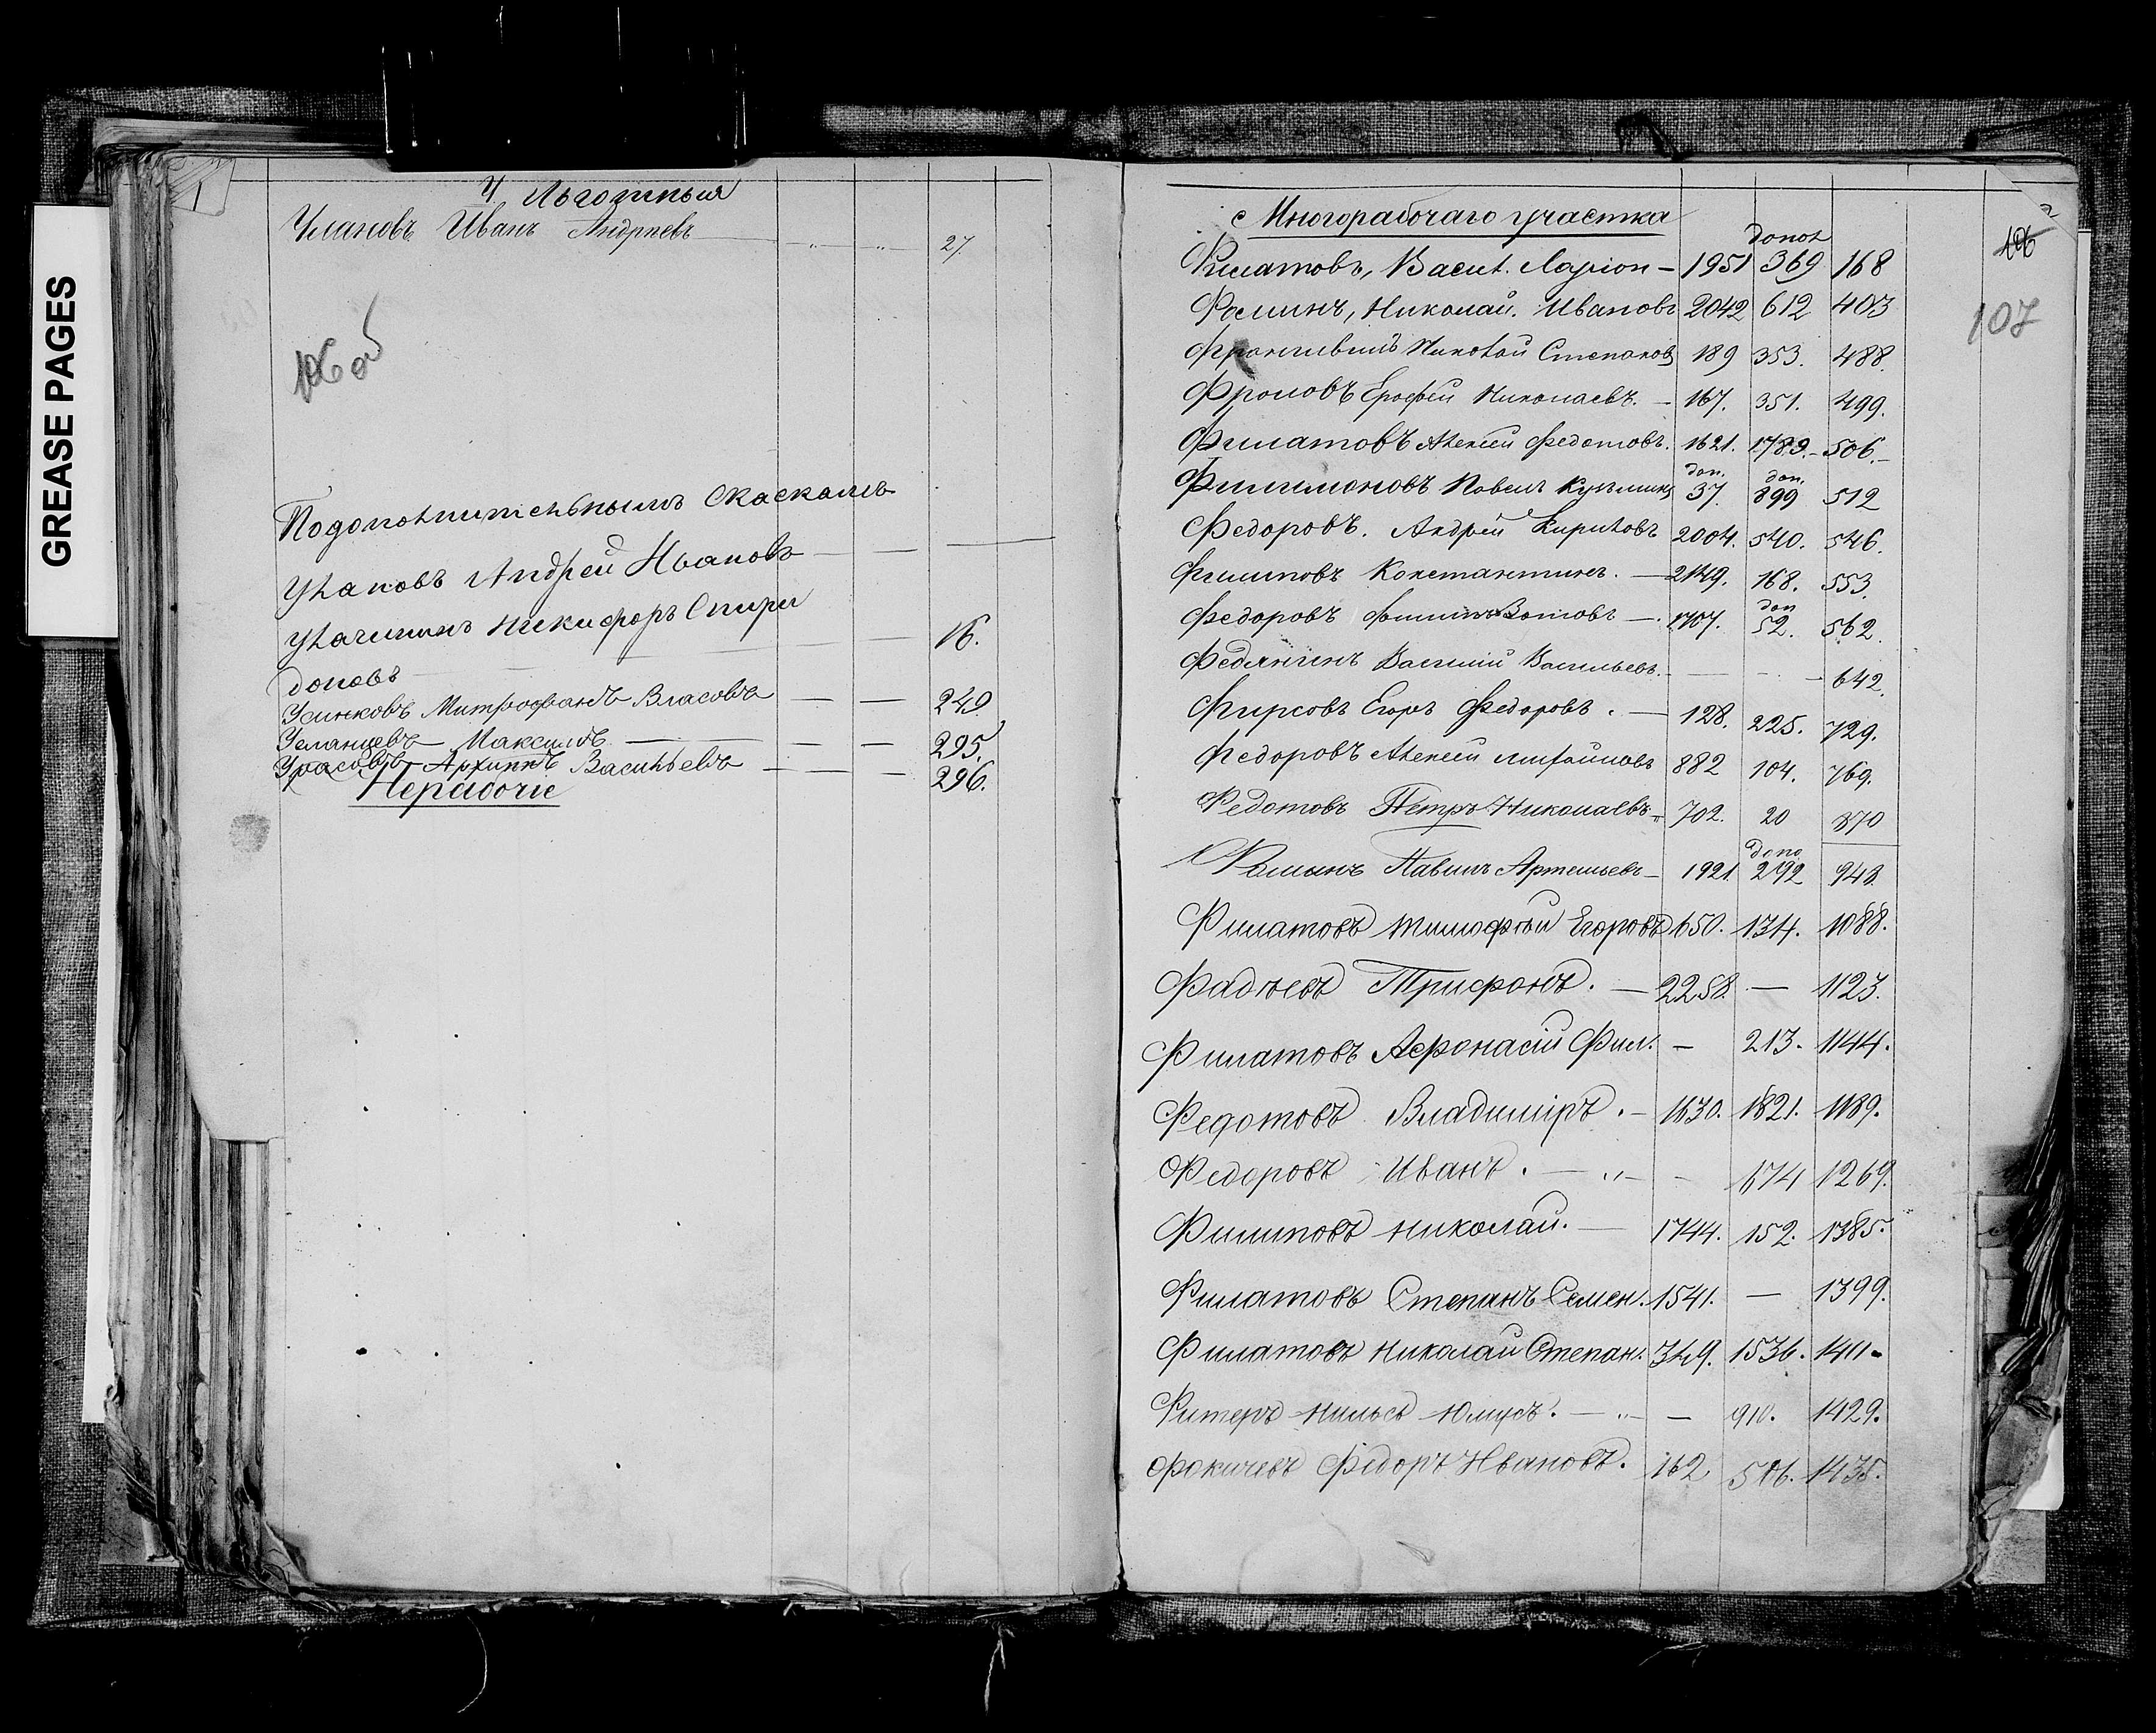 GREASE PAGES
У. Льготныя
Улановъ Иванъ Андреевъ — „ — „ — 27.
106 об
Подополнительнымъ Скаскамъ
Улановъ Андрей Ивановъ — —
Улачинъ Никифоръ Спири
доновъ — — 16.
Усинковъ Митрофанъ Власовъ — — 249.
Усманцевъ Максимъ — — — 295.
Урасовъ Архипъ Васильевъ — — — 296.
Нерабочіе
с Многорабочаго участка
106
107
Филатовъ, Васил. Ларіон — 1951 допол 369 168
Фоминъ, Николай. Ивановъ 2042 612 403
Николай Степановъ 189 353. 488.
Фроловъ Ерофей Николаевъ. — 167. 351. 499.
Филатовъ Алексей Федотовъ. 1621. 1789. — 506. —
Филимоновъ Павелъ Кузьминъ доп. 37. доп. 899 512
Федоровъ. Андрей Кириловъ 2004. 540. 546.
Филиповъ Константинъ. — 2149. 168. 553.
Федоровъ — 1707. доп 52. 562.
Федянинъ Василий Васильевъ. — — — 642.
Фирсовъ Егоръ Федоровъ. — 128. 225. 729.
Федоровъ Алексей Михайловъ 882 104. 769.
Федотовъ Петръ Николаевъ „ 702. 20 870
Фоминъ Павилъ Артемьевъ — 1921. допо 292 943.
Филатовъ Тимофей Егоровъ 650. 134. 1088.
Фадѣевъ Трифонъ. — 2258. — 1123.
Филатовъ Афонасій Фил. — 213. 1144.
Федотовъ Владиміръ. — 1630. 1821. 1189.
Федоровъ Иванъ. — „ — — 1674 1269.
Филиповъ Николай. — 1744. 152. 1385.
Филатовъ Степанъ Семен. 1541. — 1399.
Филатовъ Николай Степан. 349. 1536. 1411 -
Фитеръ Нильсъ Юлусъ. — „ — — 910. 1429.
Фокичевъ Федоръ Ивановъ. 162 506. 1435.